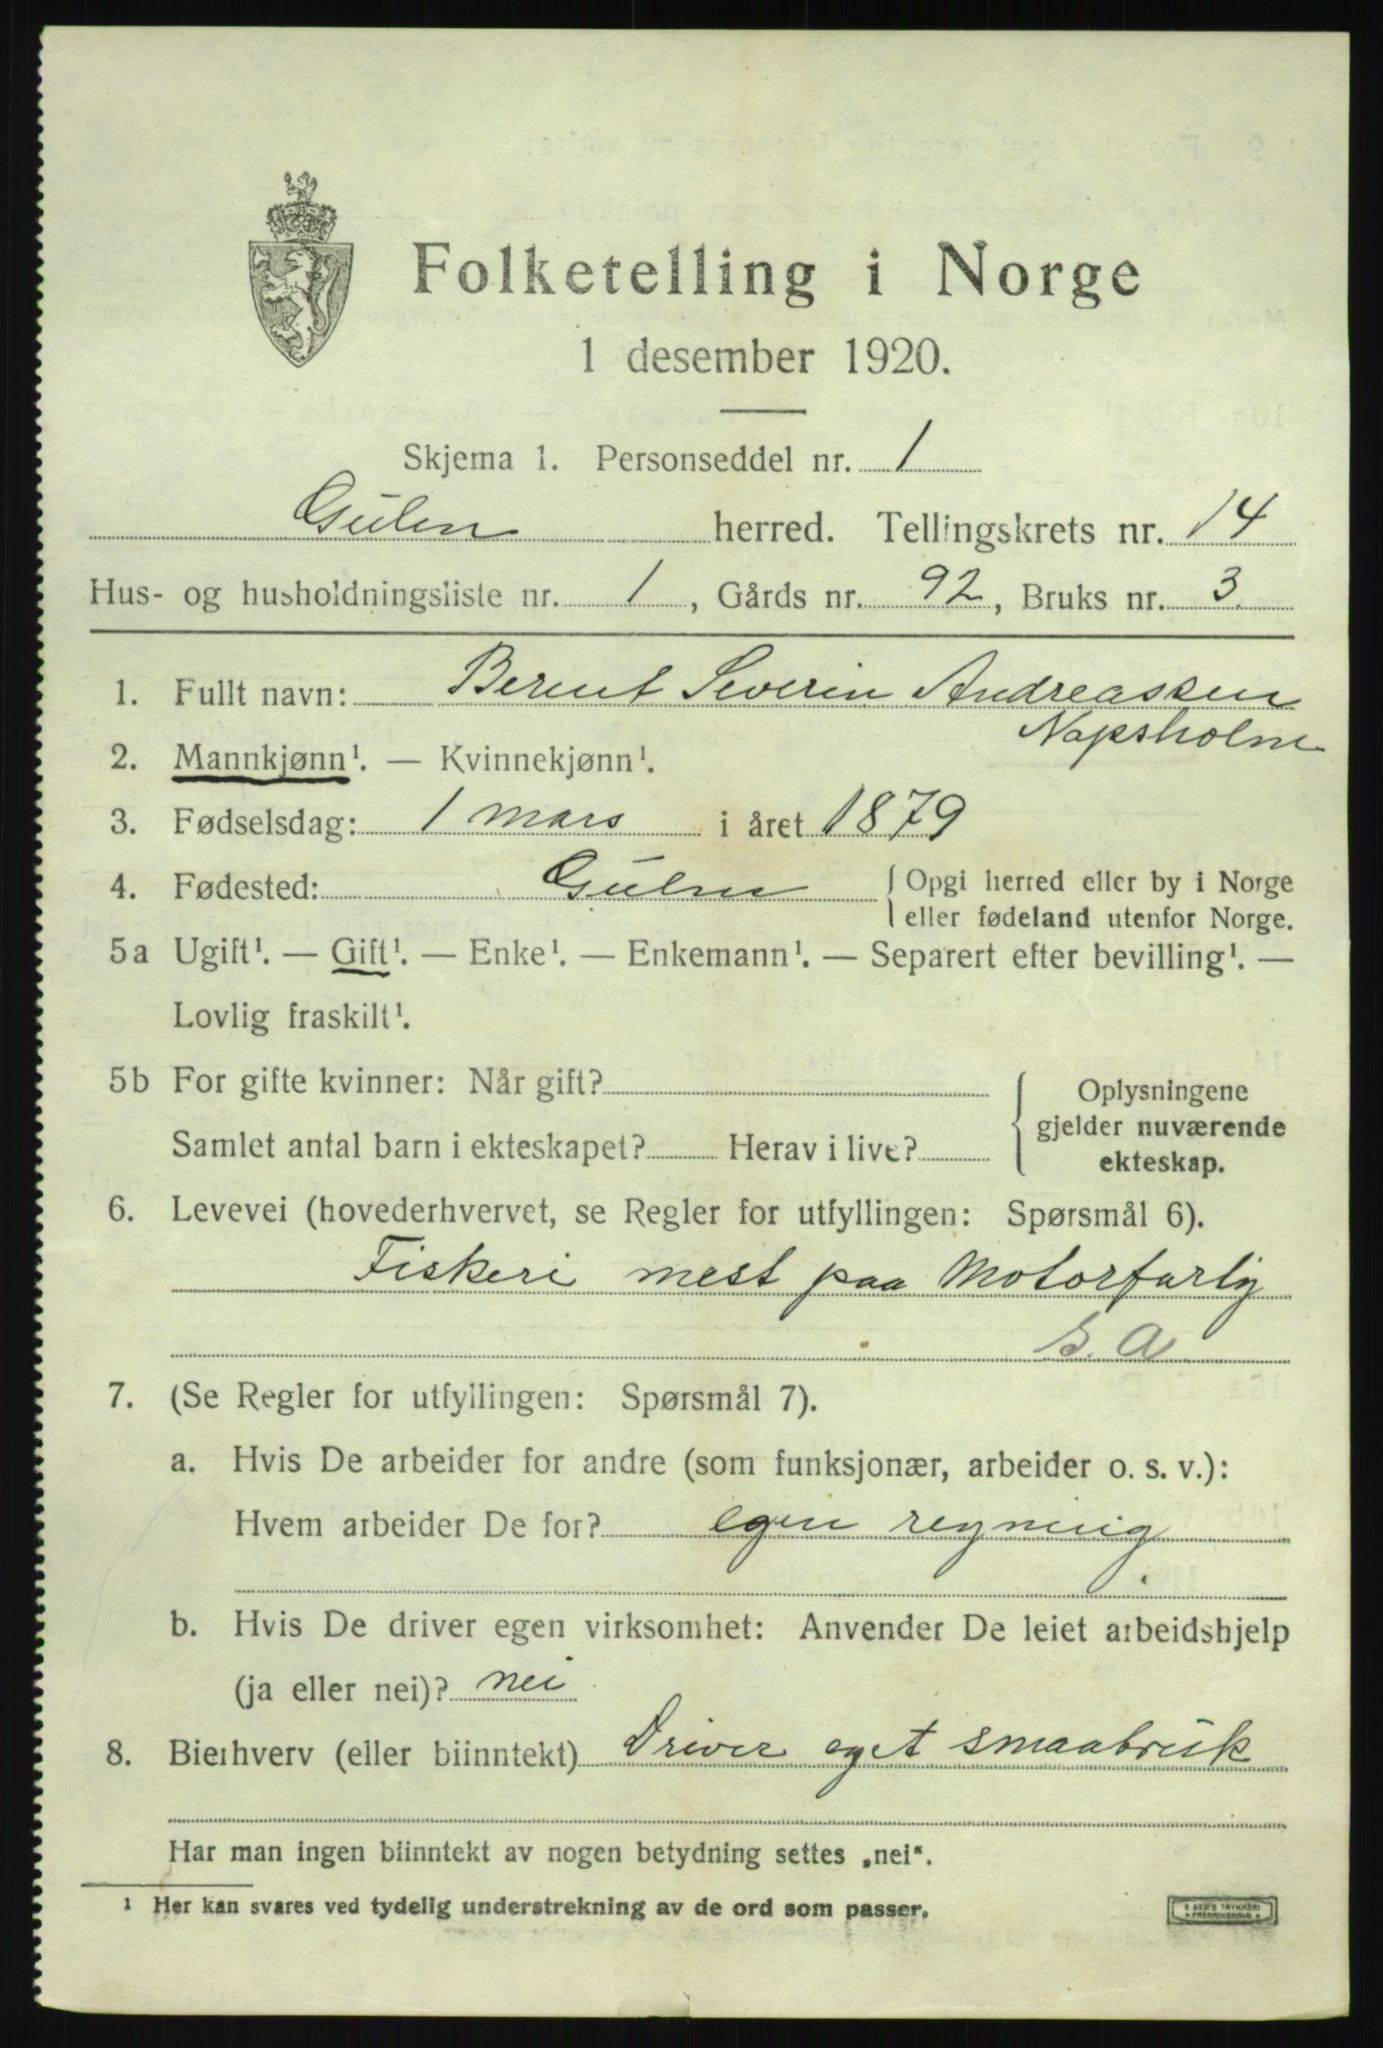 Folketelling i Norge
1 desember 1920.
Skjema 1. Personseddel nr. 1
Gulen herred. Tellingskrets nr. 14
Hus- og husholdningsliste nr. 1, Gårds nr. 92, Bruks nr. 3.
1. Fullt navn: Berent Severin Andreassen
Napsholm
2. Mannkjønn¹. — Kvinnekjønn¹.
3. Fødselsdag: 1 mars i året 1879
4. Fødested: Gulen { Opgi herred eller by i Norge
eller fødeland utenfor Norge.
5a Ugift¹. — Gift¹. — Enke¹. — Enkemann¹. — Separert efter bevilling¹. —
Lovlig fraskilt¹.
5b For gifte kvinner: Når gift? { Oplysningene
gjelder nuværende
Samlet antal barn i ekteskapet? Herav i live?
ekteskap.
6. Levevei (hovederhvervet, se Regler for utfyllingen: Spørsmål 6).
Fiskeri mest paa Motorfarty
S. A
7. (Se Regler for utfyllingen: Spørsmål 7).
a. Hvis De arbeider for andre (som funksjonær, arbeider o. s. v.):
Hvem arbeider De for? egen regning
b. Hvis De driver egen virksomhet: Anvender De leiet arbeidshjelp
(ja eller nei)? nei
8. Bierhverv (eller biinntekt) Driver eget smaabruk
Har man ingen biinntekt av nogen betydning settes „nei“.
¹ Her kan svares ved tydelig understrekning av de ord som passer.
E SEM'S TRYKKERI
FREDRIKSHALD